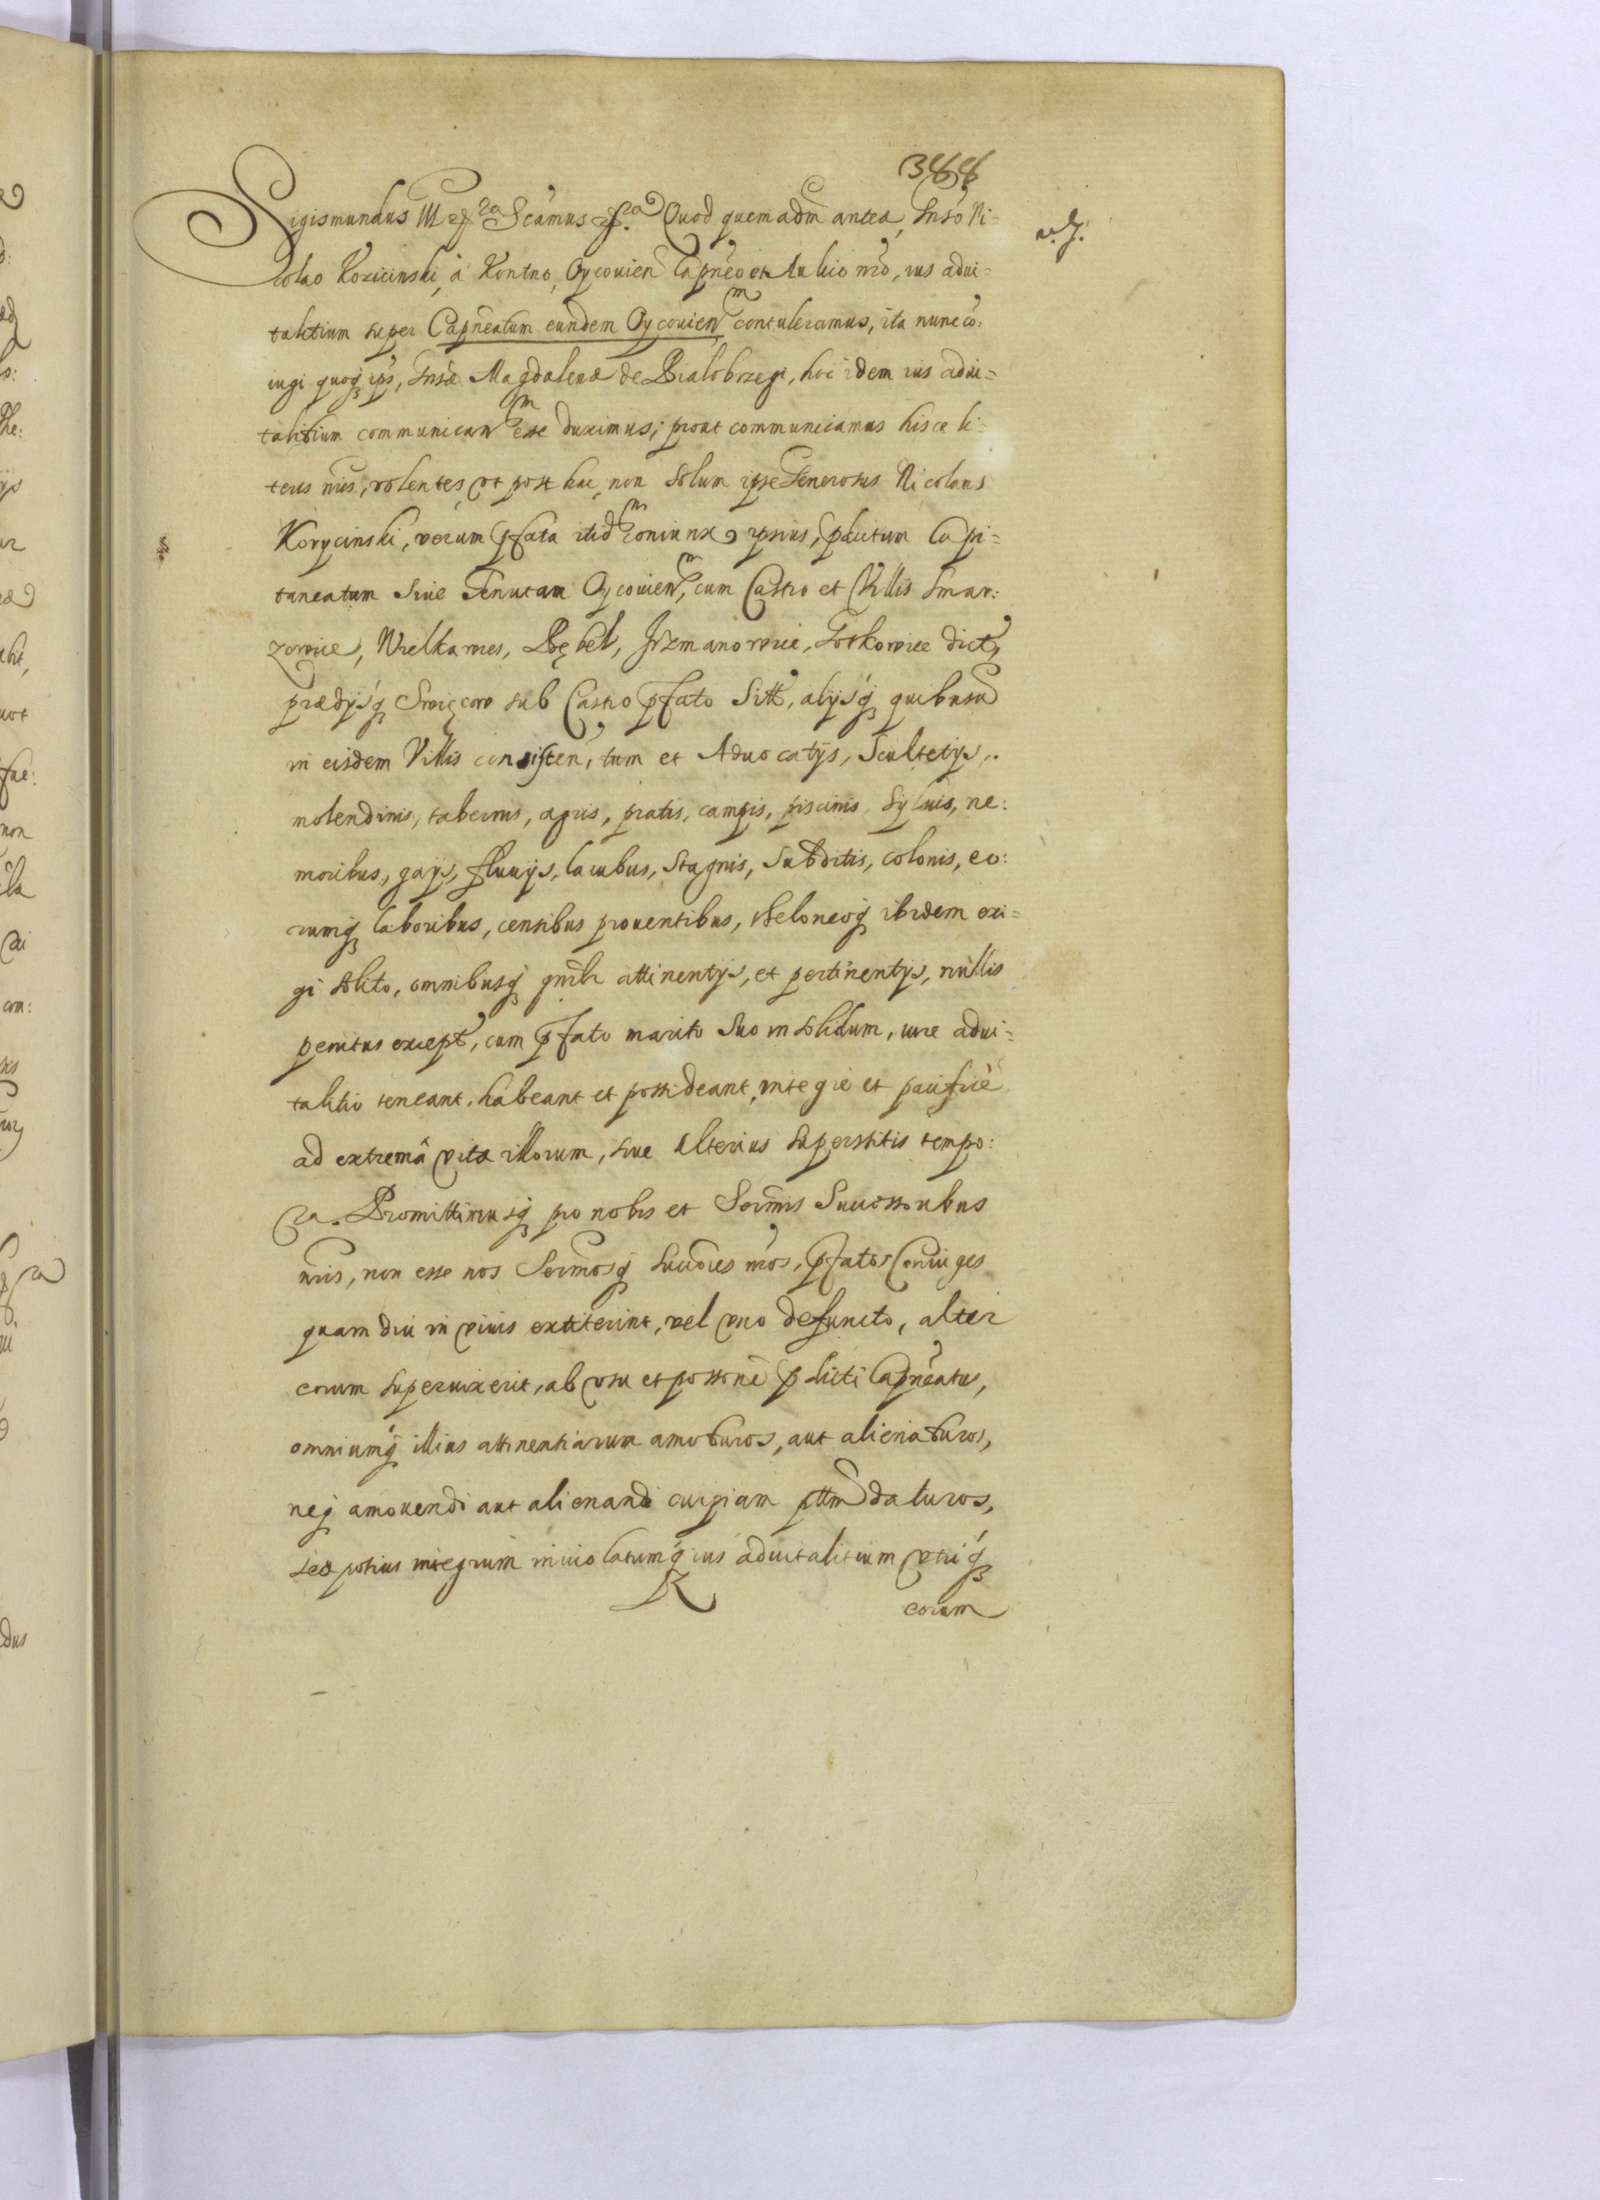 388
Sigismundus III etc. Scamus etc. Quod quemadm antea, Gnso Ni=
colao Koricinski, à Kontno, Oycouien Capneo et Aulico nro, ius adui=
talitium super Capneatum eundem Oycouien contuleramus, ita nunc co:
iugi quoq ips, Gnsæ Magdalenæ de Bialobrzegi, hoc idem ius adui=
talitium communican esse duximus; prout communicamus hisce li=
teris nris, volentes, vt post hac, non solum ipse Generosus Nicolaus
Korycinski, verum pfata itid coniunx ipsius, pdictum Capi=
taneatum siue Tenutam Oycouien, cum Castro et Villis Smar:
zowice, Wielkawies, Bębel, Jrzmanowice, Sorkowice dict,
prædijsq Swięcow sub Castro pfato Sitt, alijsq quibusu
in eisdem Villis consisten, tum et Aduocatijs, Scultetijs,
molendinis, tabernis, agris, pratis, campis, piscinis Syluis, ne:
moribus, gajs, fluuijs, lacubus, Stagnis, Subditis, colonis, eo:
rumq laboribus, censibus prouentibus, theloneoq ibidem exi=
gi solito, omnibusq gnrlr attinentijs, et pertinentijs, nullis
penitus except, cum pfato marito suo in solidum, iure adui=
talitio teneant, habeant et possideant, integre et pacificè
ad extremâ vitæ illorum, siue alterius superstitis tempo:
ra. Promittimusq pro nobis et Sermis Successoribus
nris, non esse nos Sermosq succores nros, pfatos Coniuges
quam diu in viuis extiterint, vel vno defuncto, alter
eorum superuixerit, ab vsu et possone pdicti Capneatus,
omniumq illius attinentiarum amoturos, aut alienaturos,
neq amouendi aut alienandi cuipiam pttm daturos,
sed potius integrum inuiolatumq ius aduitalitium vtriq
eorum